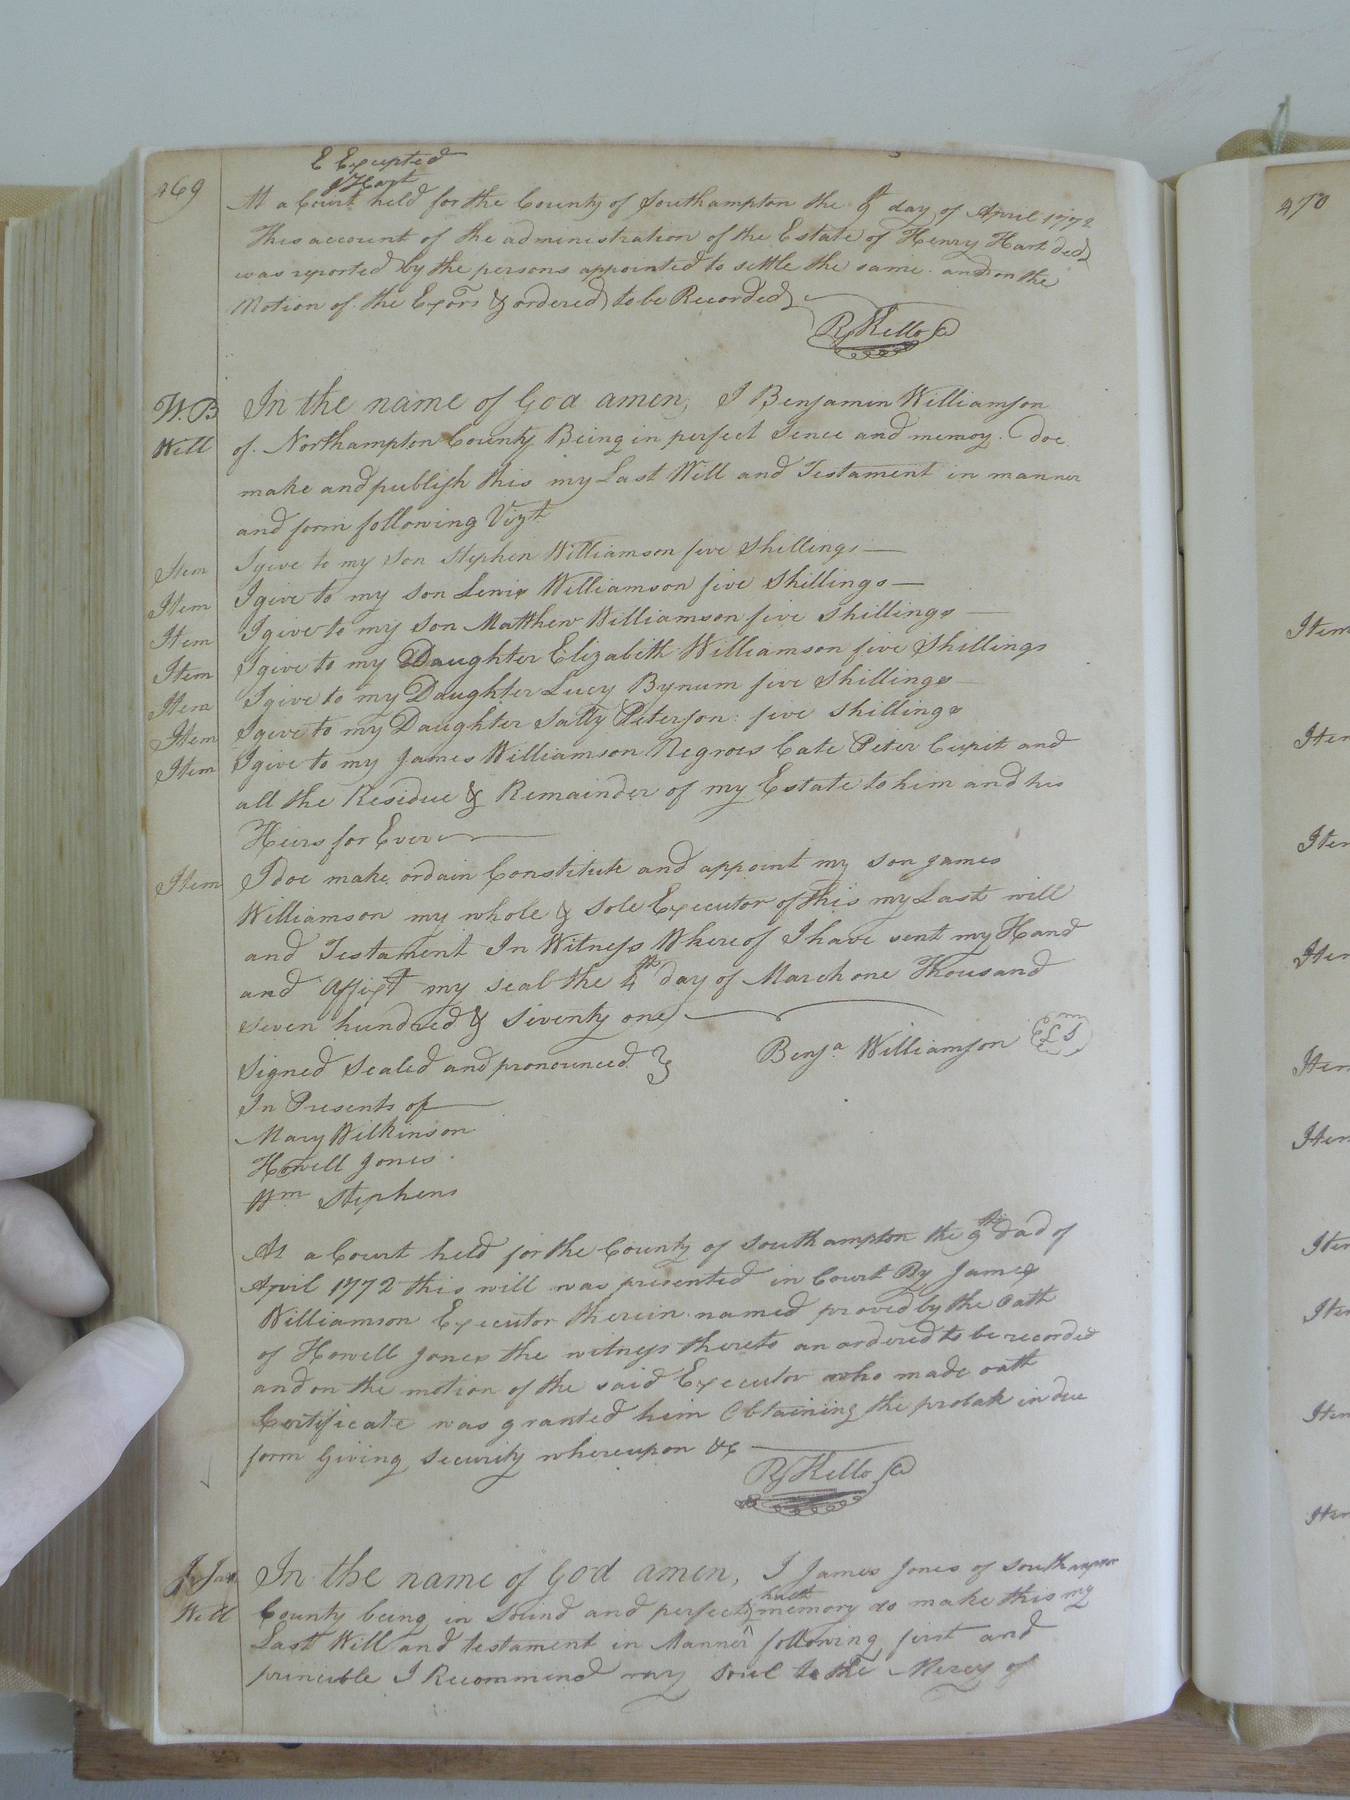 E Excepted
J Hart
469
At a Court held for the County of Southampton the 9 day of April 1772
This account of the administration of the Estate of Henry Hart decd
was reported by the persons appointed to settle the same and on the
Motion of the Exors & ordered to be Recorded
R Kello
W. B In the name of God amen, I Benjamin Williamson
Will of Northampton County Being in perfect Sence and memoy. doe
make and publish this my Last Will and Testament in manner
and form following Vizt
Item I give to my son Stephen Williamson five Shillings
Item I give to my son Lewis Williamson five Shillings
Item I give to my son Matthew Williamson five shillings
Item I give to my Daughter Elizabeth Williamson five Shillings
Item I give to my Daughter Lucy Bynum five Shillings
Item I give to my Daughter Sally Peterson: five shillings
Item I give to my James Williamson Negroes Cate Peter Cupit and
all the Residue & Remainder of my Estate to him and his
Heirs for Ever
Item I doe make ordain Constitute and appoint my son James
Williamson my whole & sole Executor of this my Last will
and Testament In Witness Whereof I have sent my Hand
and Affixt my seal the 4th day of March one Thousand
seven hundred & seventy one
Benja Williamson LS
Signed Sealed and pronounced
In Presents of
Mary Wilkinson
Howell Jones
Wm Stephens
At a Court held for the County of Southampton the 9th dad of
April 1772 this will was presented in Court By James
Williamson Executor therein named proved by the Oath
of Howell Jones the witness thereto an ordered to be recorded
and on the motion of the said Executor who made oath
Certificate was granted him Obtaining the probate in due
form Giving security whereupon &c
R Kello
In the name of God amen, I James Jones of Southampton
Will County being in Sound and perfect memory do make this my
Last Will and testament in Manner following first and
I Recommend my soul to the Mercy of
470
Item
Item
Item
Item
Item
Item
Item
Item
Item
Item